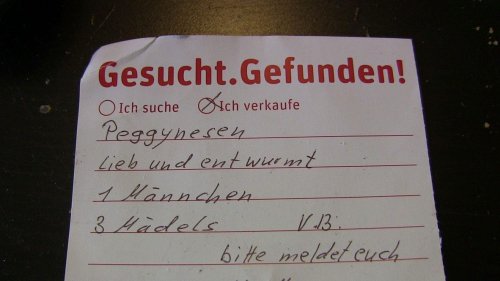 Gesucht.Gefunden!
Ich suche Ich verkaufe
Peggynesen
lieb und entwurmt
1 Männchen
3 Mädels VB.
bitte meldet euch